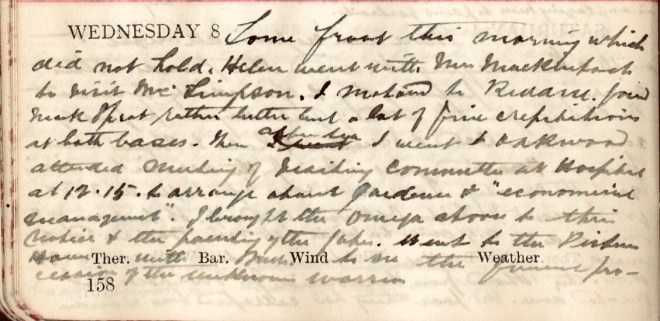 WEDNESDAY 8 Some frost this morning which
did not hold. Helen went with Mrs Mackintosh
to visit Mrs Simpson. I motored to
rather better but a lot of fine crepitations
at both bases. Then I went to Oakwood
attended Meeting of Visiting Committee at Hospital
at 12.15. to arrange about Gardener & "economical
management". I brought the Omega stoves to their
notice & the painting of the . Went to the Picture
House with to see the funeral pro-
Ther. Bar. Wind Weather
cession of the unknown warrior
158